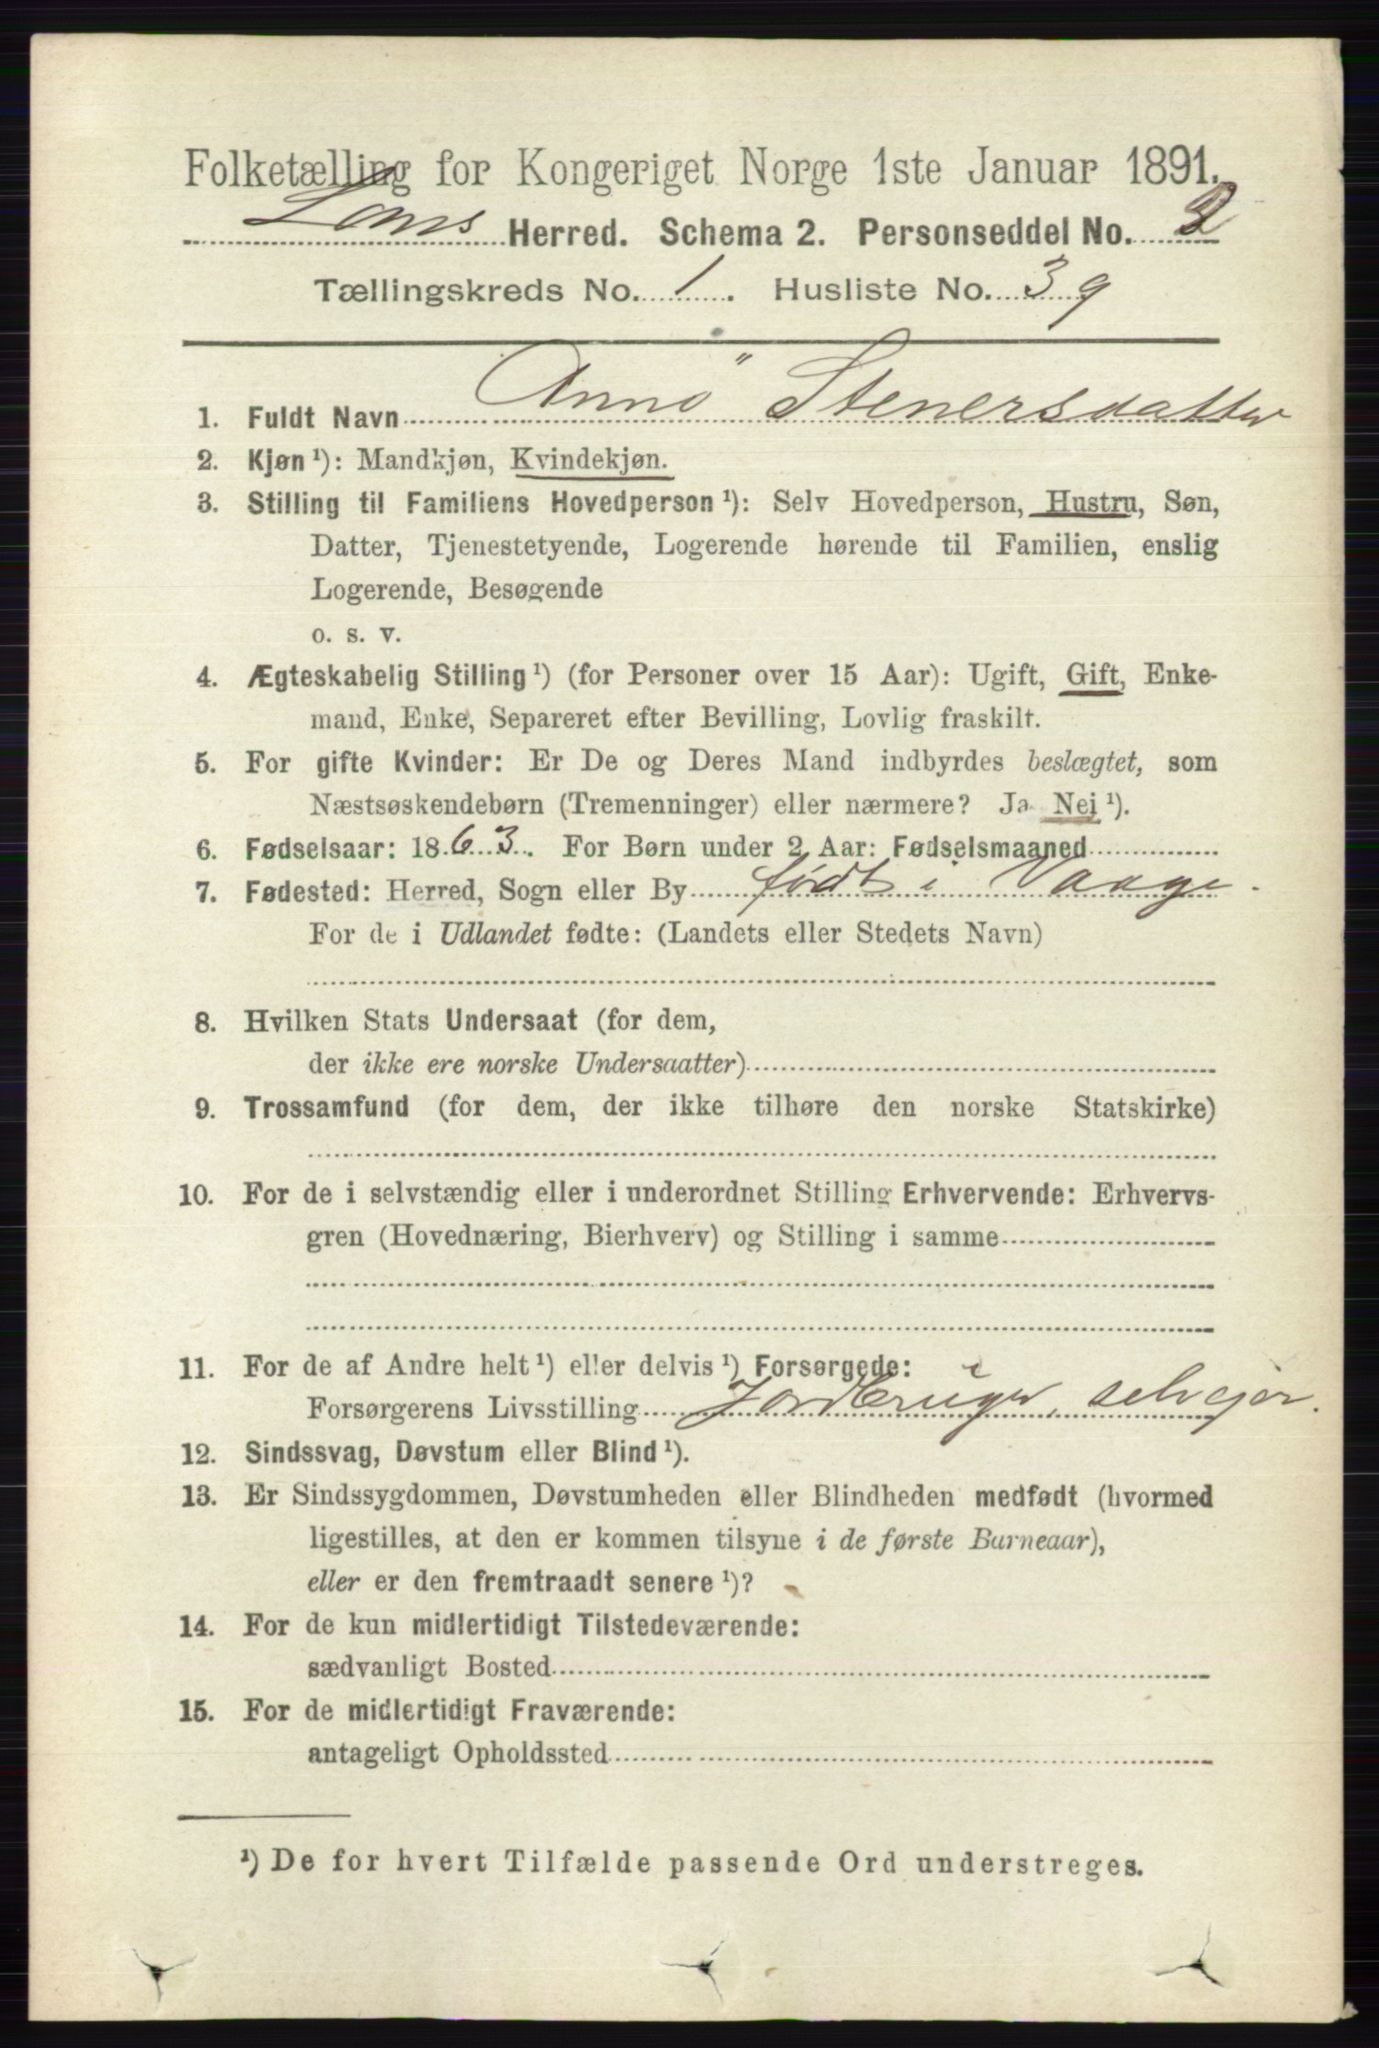 Folketælling for Kongeriget Norge 1ste Januar 1891.
Loms Herred. Schema 2. Personseddel No. 2
Tællingskreds No. 1. Husliste No. 39
1. Fuldt Navn Anne Stenersdatter
2. Kjøn ¹): Mandkjøn, Kvindekjøn.
3. Stilling til Familiens Hovedperson ¹): Selv Hovedperson, Hustru, Søn,
Datter, Tjenestetyende, Logerende hørende til Familien, enslig
Logerende, Besøgende
o. s. v.
4. Ægteskabelig Stilling ¹) (for Personer over 15 Aar): Ugift, Gift, Enke-
mand, Enke, Separeret efter Bevilling, Lovlig fraskilt.
5. For gifte Kvinder: Er De og Deres Mand indbyrdes beslægtet, som
Næstsøskendebørn (Tremenninger) eller nærmere? Ja Nei ¹).
6. Fødselsaar: 1863. For Børn under 2 Aar: Fødselsmaaned
7. Fødested: Herred, Sogn eller By født i Vaage.
For de i Udlandet fødte: (Landets eller Stedets Navn)
8. Hvilken Stats Undersaat (for dem,
der ikke ere norske Undersaatter)
9. Trossamfund (for dem, der ikke tilhøre den norske Statskirke)
10. For de i selvstændig eller i underordnet Stilling Erhvervende: Erhvervs-
gren (Hovednæring, Bierhverv) og Stilling i samme
11. For de af Andre helt ¹) eller delvis ¹) Forsørgede:
Forsørgerens Livsstilling Jordbruger, selvejer.
12. Sindssvag, Døvstum eller Blind ¹).
13. Er Sindssygdommen, Døvstumheden eller Blindheden medfødt (hvormed
ligestilles, at den er kommen tilsyne i de første Barneaar),
eller er den fremtraadt senere ¹)?
14. For de kun midlertidigt Tilstedeværende:
sædvanligt Bosted
15. For de midlertidigt Fraværende:
antageligt Opholdssted
¹) De for hvert Tilfælde passende Ord understreges.